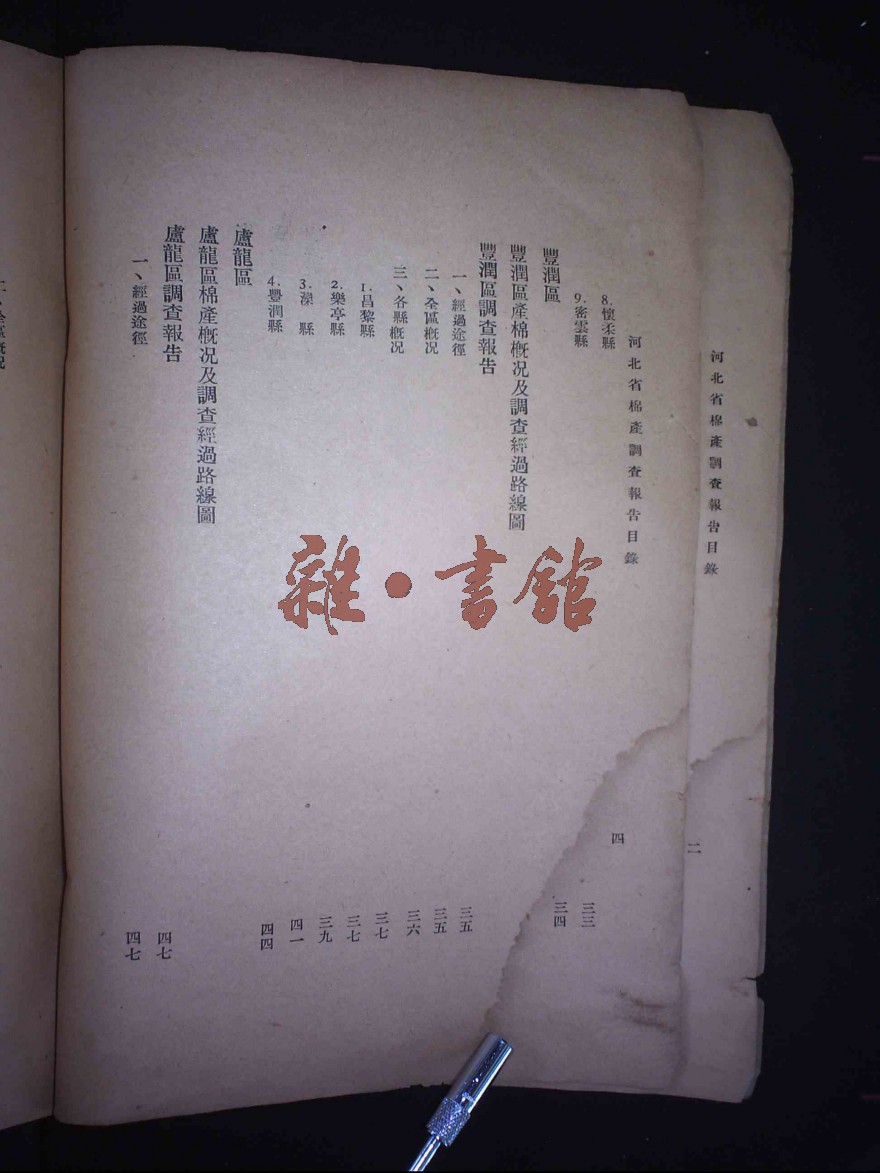 河北省棉產調查報告目錄 二
河北省棉產調查報告目錄 四
8. 懷柔縣 三三
9. 密雲縣 三四
豐潤區
豐潤區產棉概况及調查經過路線圖
豐潤區調查報告 三五
一、經過途徑 三五
二、全區概况 三六
三、各縣概况 三七
1. 昌黎縣 三七
2. 樂亭縣 三九
3. 灤 縣 四一
4. 豐潤縣 四四
盧龍區
盧龍區棉產概况及調查經過路線圖
盧龍區調查報告 四七
一、經過途徑 四七
雜·書館